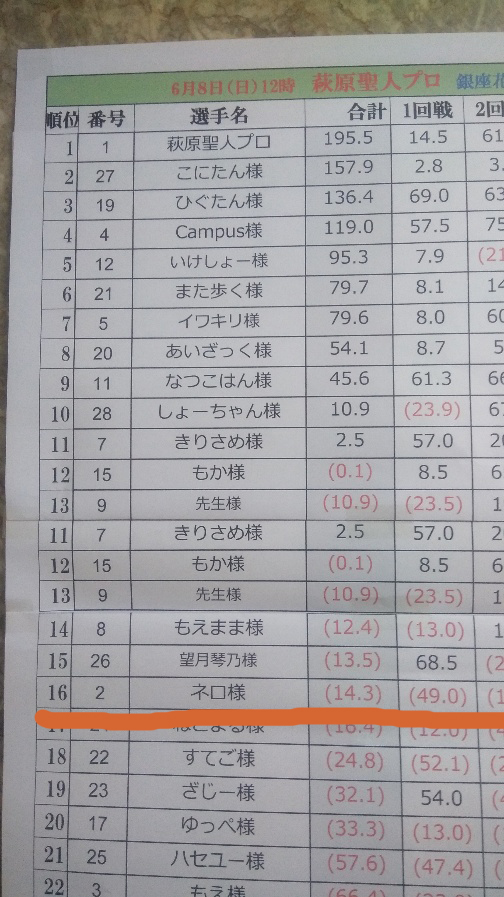 6月8日(日)12時 萩原聖人プロ 銀座
順位 番号 選手名 合計 1回戦 2回
1 1 萩原聖人プロ 195.5 14.5 61
2 27 こにたん様 157.9 2.8 3.
3 19 ひぐたん様 136.4 69.0 63
4 4 Campus様 119.0 57.5 75
5 12 いけしょー様 95.3 7.9 (21
6 21 また歩く様 79.7 8.1 14
7 5 イワキリ様 79.6 8.0 60
8 20 あいざっく様 54.1 8.7 5
9 11 なつこはん様 45.6 61.3 66
10 28 しょーちゃん様 10.9 (23.9) 67
11 7 きりさめ様 2.5 57.0 20
12 15 もか様 (0.1) 8.5 6
13 9 先生様 (10.9) (23.5) 1
11 7 きりさめ様 2.5 57.0 2
12 15 もか様 (0.1) 8.5 6
13 9 先生様 (10.9) (23.5) 1
14 8 もえまま様 (12.4) (13.0) 1
15 26 望月琴乃様 (13.5) 68.5 (2
16 2 ネロ様 (14.3) (49.0) (1
(16.4) (12.0)
18 22 すてご様 (24.8) (52.1) (2
19 23 ざじー様 (32.1) 54.0 (4
20 17 ゆっぺ様 (33.3) (13.0) (
21 25 ハセユー様 (57.6) (47.4) (
22 3 もえ様 (66.4)